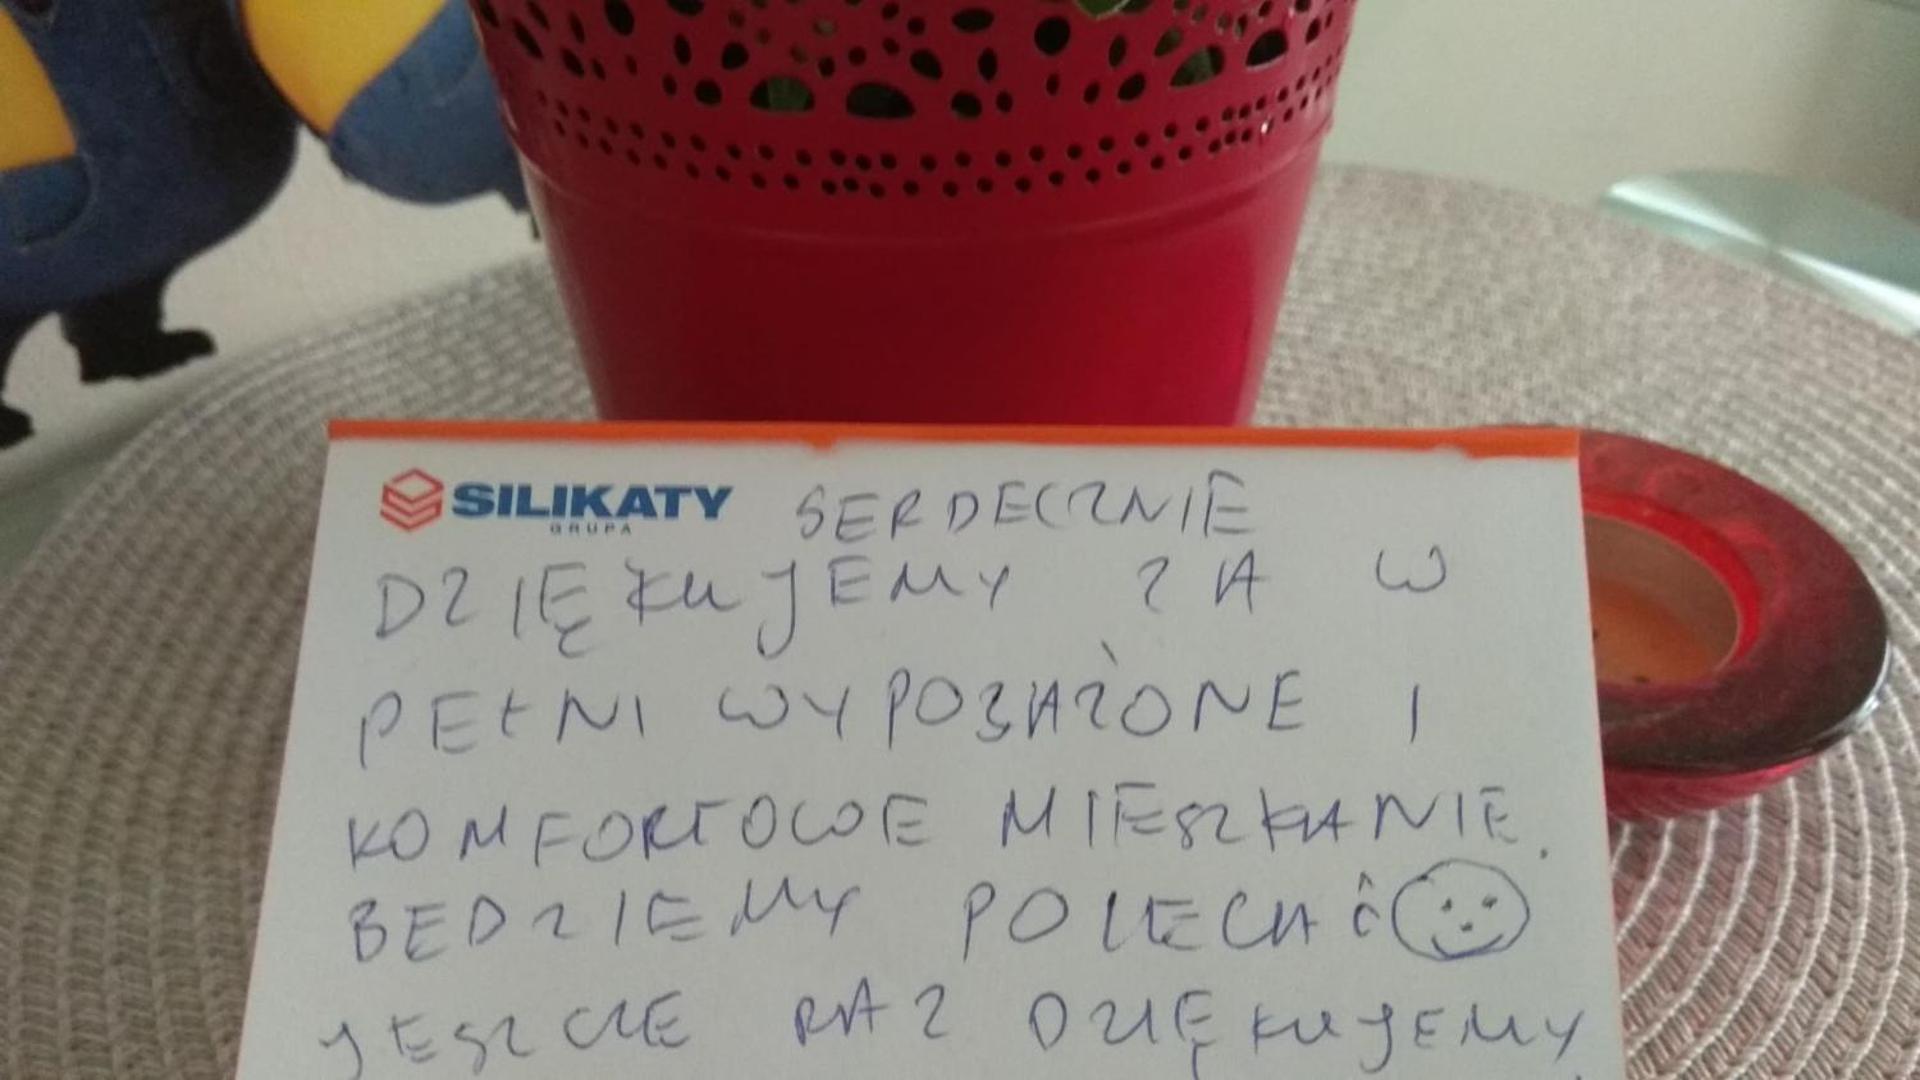 SILIKATY SERDECZNIE
GRUPA
DZIĘKUJEMY ZA W
PEŁNI WYPOSAŻONE I
KOMFORTOWE MIESZKANIE.
BEDZIEMY POLECAĆ
JESZCZE RAZ DZIĘKUJEMY.